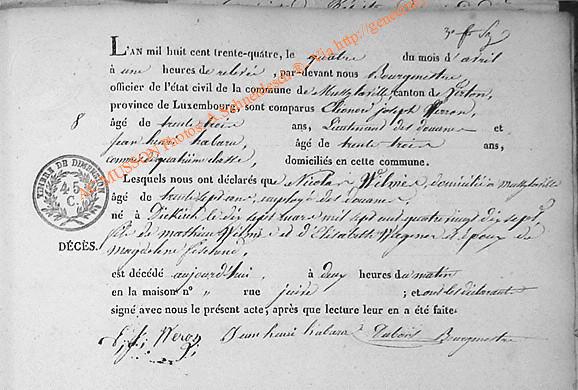 3e
L'AN mil huit cent trente-quatre, le quatre du mois d'avril
à une heures de relevée, par-devant nous Bourgmestre
officier de l'état civil de la commune de canton de Virton,
province de Luxembourg, sont comparus joseph
8
âgé de trente trois ans, Lieutenant des douanes et
jean henri habara, âgé de trente trois ans,
commis quatrième classe, domiciliés en cette commune.
Lesquels nous ont déclarés que Nicolas Wilmé domicilié à
âgé de trente sept ans, employé des douanes
né à Diekirch le dix sept mars mil sept cent quatre vingt dix sept,
fils de mathieu Wilmé et d'Elisabeth Wagner et époux de
DÉCÈS.
Magdelene
est décédé aujourd'hui, à deux heures du matin
en la maison nº " rue ; et ont les déclarants
signé avec nous le présent acte, après que lecture leur en a été faite.
Jean henri habara Dubois Bourgmestre
TIMBRE DE DIMENSION
45
C.
MUSSON Photos A.Schneblesch ® via http://geneotray